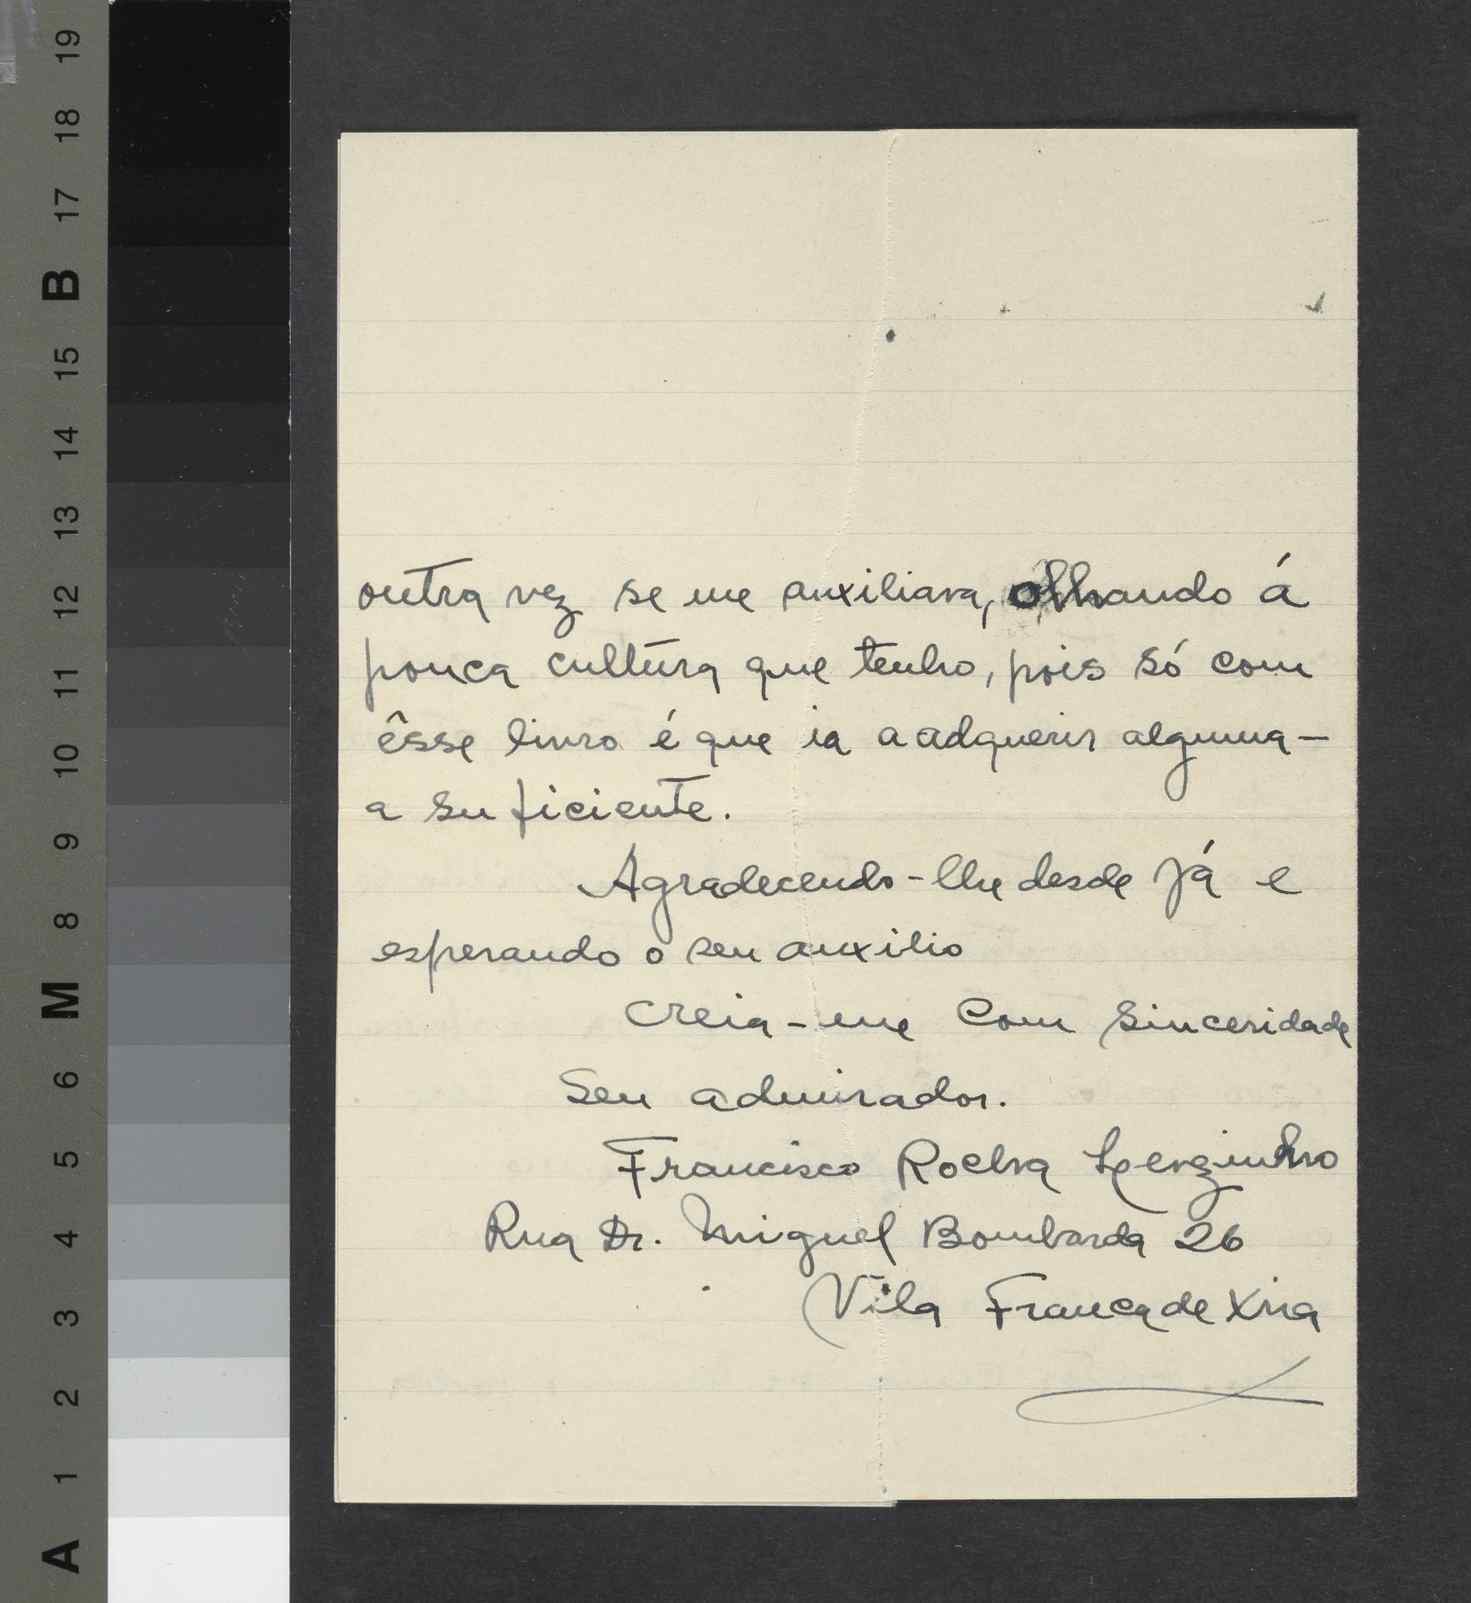 19
18
17
B
15
14
13
12
11
10
9
8
M
6
5
4
3
2
1
A
outra vez se me auxiliava, olhando á
pouca cultura que tenho, pois só com
êsse livro é que ia a adquerir alguma—
a suficiente.
Agradecendo-lhe desde já e
esperando o seu auxilio
Creia-me com sinceridade
Seu admirador.
Francisco Rocha
Rua Dr. Miguel Bombarda 26
Vila Franca de Xira